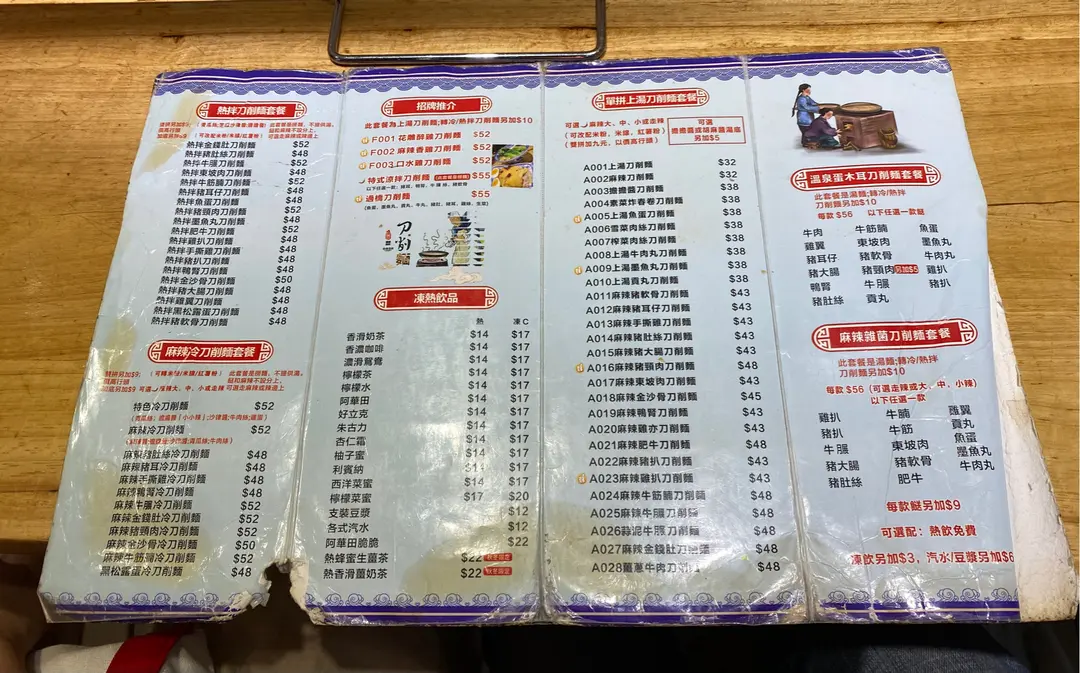 熱拌刀削麵套餐
熱拌金錢肚刀削麵 $52
熱拌豬肚絲刀削麵 $48
熱拌牛腩刀削麵 $52
熱拌東坡肉刀削麵 $48
熱拌牛筋腩刀削麵 $52
熱拌豬耳仔刀削麵 $48
熱拌魚蛋刀削麵 $48
熱拌豬頸肉刀削麵 $52
熱拌墨魚丸刀削麵 $48
熱拌肥牛刀削麵 $52
熱拌雞扒刀削麵 $48
熱拌手撕雞刀削麵 $48
熱拌豬扒刀削麵 $48
熱拌鴨腎刀削麵 $48
熱拌金沙骨刀削麵 $50
熱拌豬大腸刀削麵 $48
熱拌雞翼刀削麵 $48
熱拌黑松露蛋刀削麵 $48
熱拌豬軟骨刀削麵 $48
麻辣冷刀削麵套餐
特色冷刀削麵 $52
麻辣冷刀削麵 $52
麻辣豬肚絲冷刀削麵 $48
麻辣豬耳冷刀削麵 $48
麻辣手撕雞冷刀削麵 $48
麻辣鴨腎冷刀削麵 $48
麻辣牛腩冷刀削麵 $52
麻辣金錢肚冷刀削麵 $52
麻辣豬頸肉冷刀削麵 $52
麻辣金沙骨冷刀削麵 $50
麻辣牛筋腩冷刀削麵 $52
黑松露蛋冷刀削麵 $48
招牌推介
此套餐為上湯刀削麵;轉冷/熱拌刀削麵另加$10
F001 花雕醉雞刀削麵 $52
F002 麻辣香雞刀削麵 $52
F003 口水雞刀削麵 $52
特式凉拌刀削麵 $55
過橋刀削麵 $55
凍熱飲品
熱 凍C
香滑奶茶 $14 $17
香濃咖啡 $14 $17
濃滑鴛鴦 $14 $17
檸檬茶 $14 $17
檸檬水 $14 $17
阿華田 $14 $17
好立克 $14 $17
朱古力 $14 $17
杏仁霜 $14 $17
柚子蜜 $14 $17
利賓納 $14 $17
西洋菜蜜 $14 $17
檸檬菜蜜 $17 $20
支裝豆漿 $12
各式汽水 $12
阿華田脆脆 $22
熱蜂蜜生薑茶 $22
熱香滑薑奶茶 $22
單拼上湯刀削麵套餐
可選 麻辣大、中、小或走辣
(可改配米粉，米線，紅薯粉)
(雙拼加九元，以價高行頭)
可選
擔擔醬或胡麻醬湯底
另加$5
A001上湯刀削麵 $32
A002麻辣刀削麵 $32
A003擔擔醬刀削麵 $38
A004素菜炸春卷刀削麵 $38
A005上湯魚蛋刀削麵 $38
A006雪菜肉絲刀削麵 $38
A007榨菜肉絲刀削麵 $38
A008上湯牛肉丸刀削麵 $38
A009上湯墨魚丸刀削麵 $38
A010上湯貢丸刀削麵 $38
A011麻辣豬軟骨刀削麵 $43
A012麻辣豬耳仔刀削麵 $43
A013麻辣手撕雞刀削麵 $43
A014麻辣豬肚絲刀削麵 $43
A015麻辣豬大腸刀削麵 $43
A016麻辣豬頸肉刀削麵 $48
A017麻辣東坡肉刀削麵 $43
A018麻辣金沙骨刀削麵 $45
A019麻辣鴨腎刀削麵 $43
A020麻辣雞亦刀削麵 $43
A021麻辣肥牛刀削麵 $48
A022麻辣豬扒刀削麵 $43
A023麻辣雞扒刀削麵 $43
A024麻辣牛筋腩刀削麵 $48
A025麻辣牛腩刀削麵 $48
A026蒜泥牛腩刀削麵 $48
A027麻辣金錢肚刀削麵 $48
A028薑蔥牛肉刀削麵 $48
溫泉蛋木耳刀削麵套餐
此套餐是湯麵;轉冷/熱拌
刀削麵另加$10
每款 $56 以下任選一款餸
牛肉 牛筋腩 魚蛋
雞翼 東坡肉 墨魚丸
豬耳仔 豬軟骨 牛肉丸
豬大腸 豬頸肉另加$5 雞扒
鴨腎 牛腩 豬扒
豬肚絲 貢丸
麻辣雜菌刀削麵套餐
此套餐是湯麵;轉冷/熱拌
刀削麵另加$10
每款 $56 (可選走辣或大、中、小辣)
以下任選一款
雞扒 牛腩 雞翼
豬扒 牛筋 貢丸
牛腩 東坡肉 魚蛋
豬大腸 豬軟骨 墨魚丸
豬肚絲 肥牛 牛肉丸
每款餸另加$9
可選配：熱飲免費
凍飲另加$3，汽水/豆漿另加$6